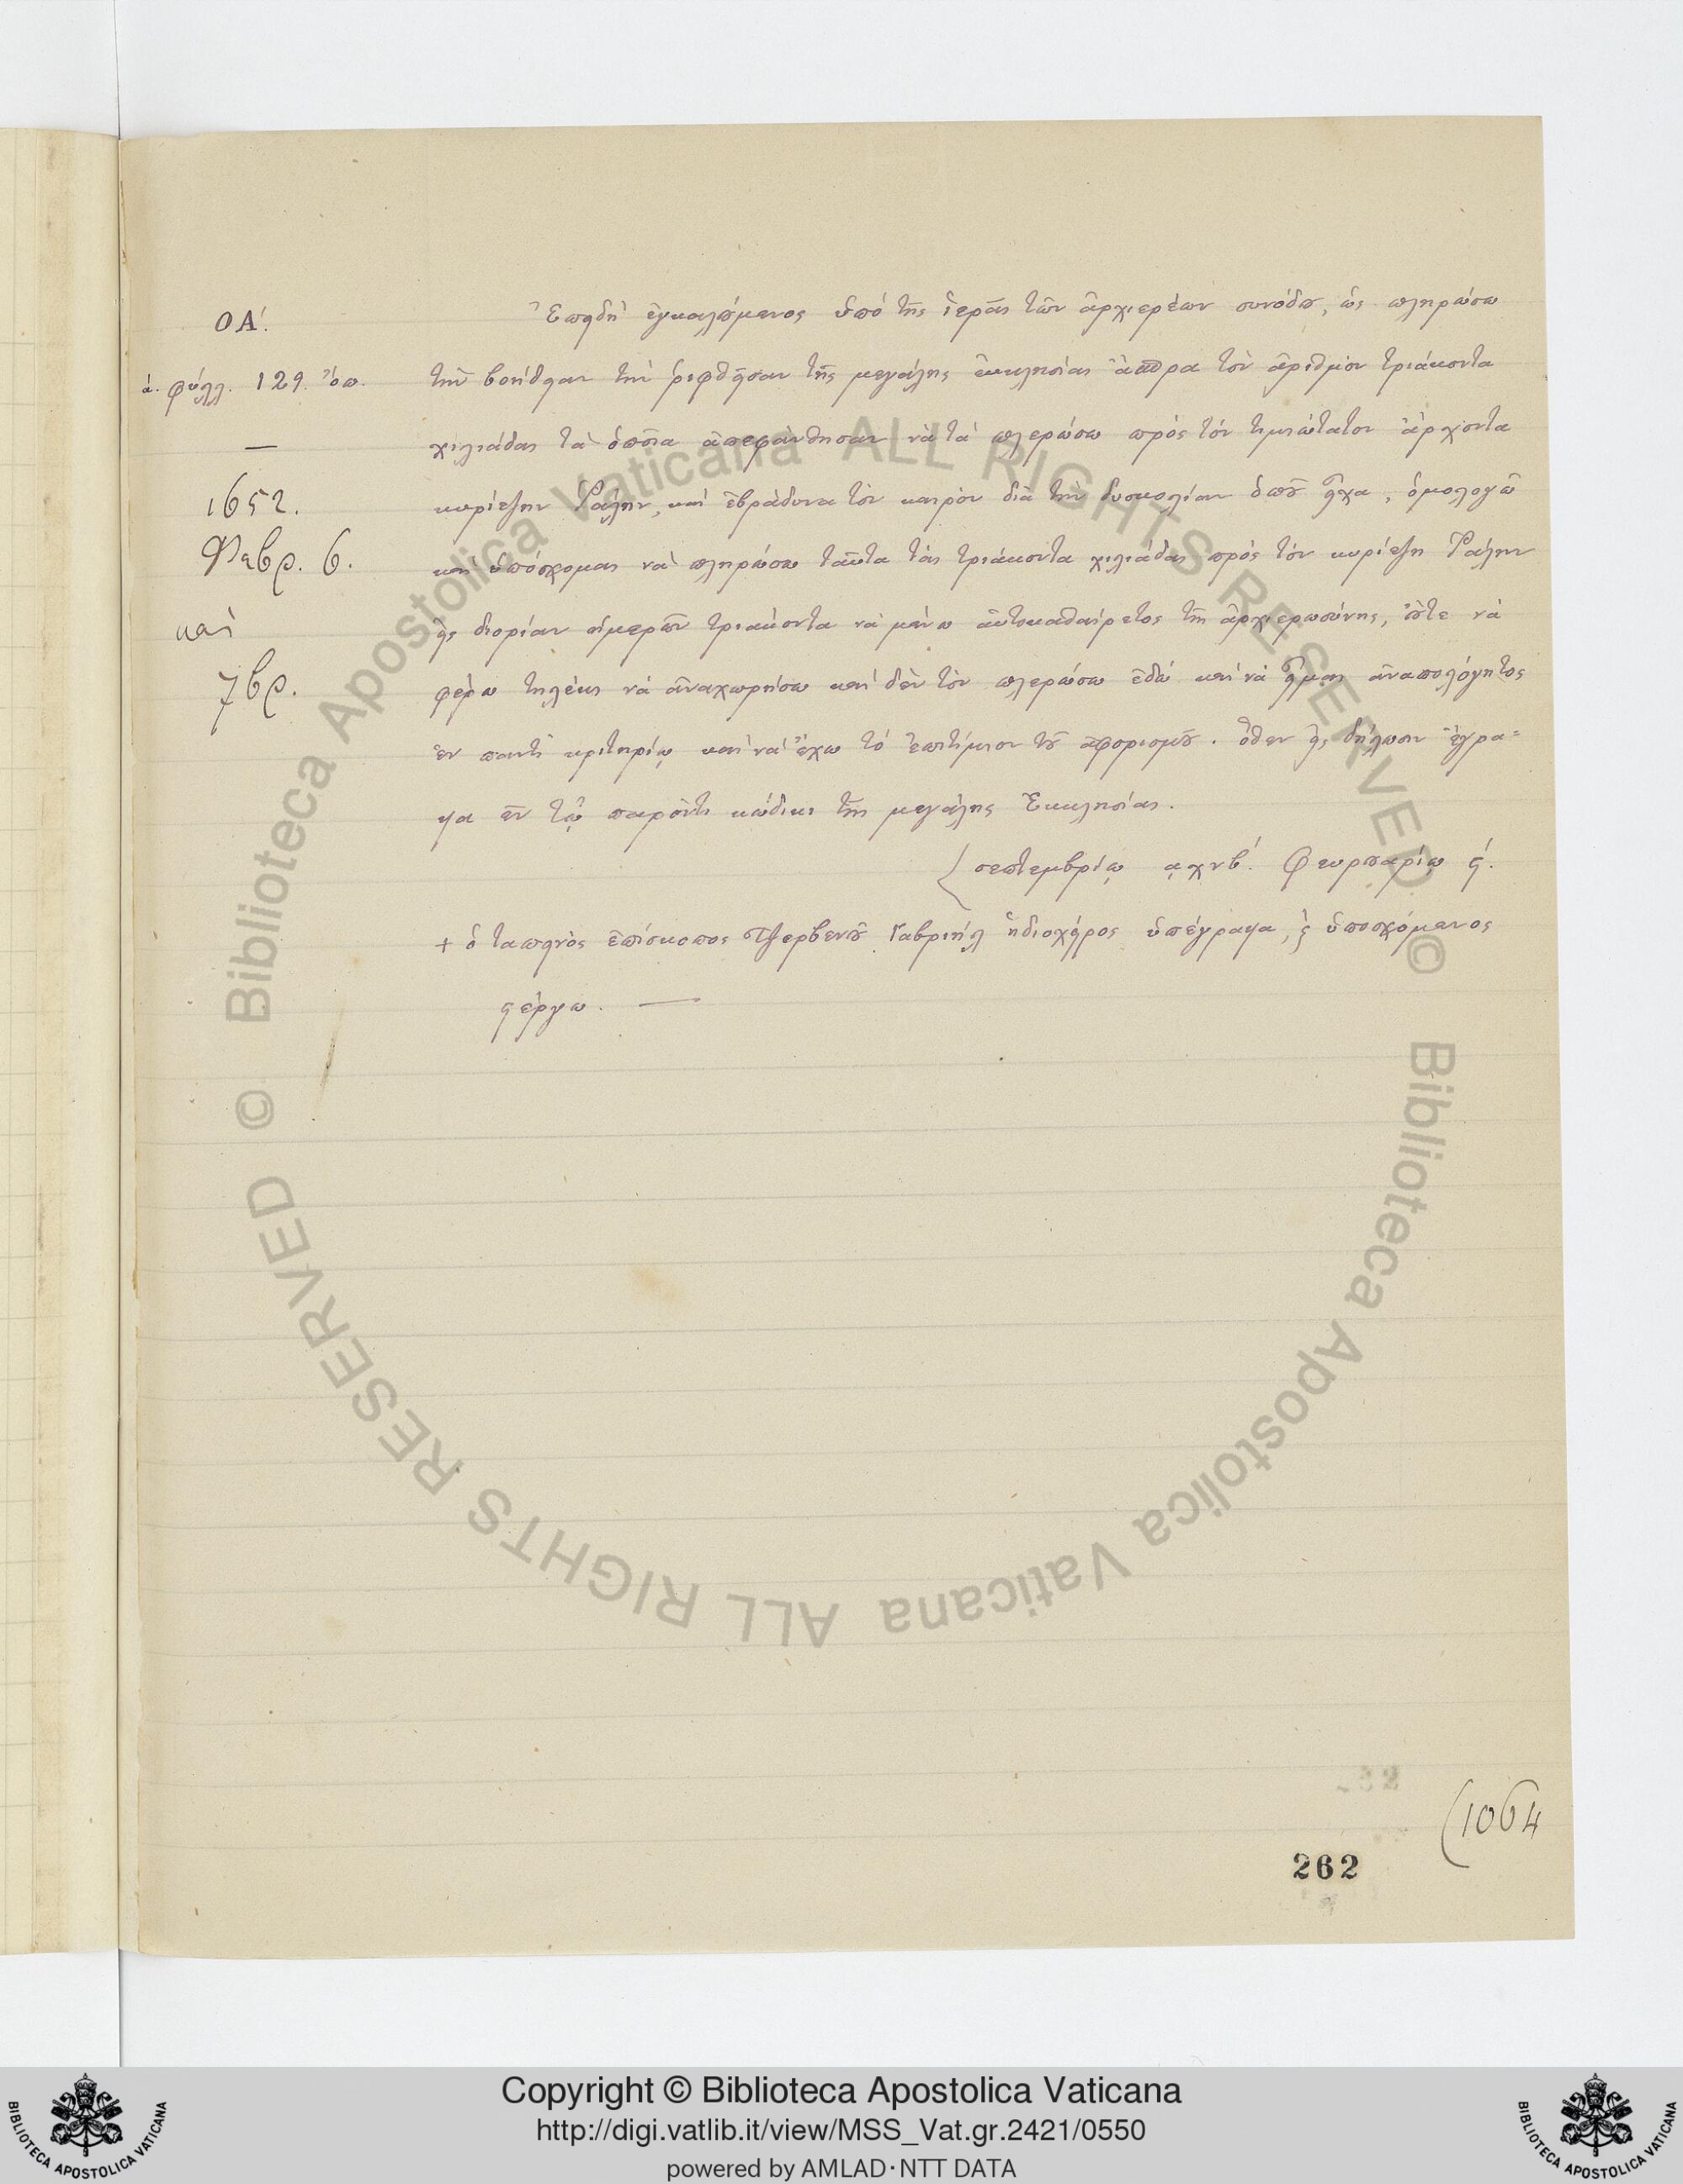 ΟΑ΄.
ἀ. φύλλ. 129. ὄπ.
1652.
Φεβρ. 6.
καὶ
7βρ.
Ἐπειδὴ ἐγκαλούμενος ὑπὸ τῆς ἱερᾶς τῶν ἀρχιερέων συνόδου, ὡς πληρώσω
τὴν βοήθειαν τὴν ῥιφθεῖσαν τῆς μεγάλης ἐκκλησίας ἄσπρα τὸν ἀριθμὸν τριάκοντα
χιλιάδας τὰ ὁποῖα ἀπεφάνθησαν νὰ τὰ πλερώσω πρὸς τὸν τιμιώτατον ἄρχοντα
κυρίτζην Ῥάλην, καὶ ἐβράδυνα τὸν καιρὸν διὰ τὴν δυσκολίαν ὁποῦ εἶχα, ὁμολογῶ
καὶ ὑπόσχομαι νὰ πληρώσω ταῦτα τὰς τριάκοντα χιλιάδας πρὸς τὸν κυρίτζη Ῥάλην
εἰς διορίαν ἡμερῶν τριακόντα νὰ μένω αὐτοκαθαίρετος τῆς ἀρχιερωσύνης, οὔτε νὰ
φέρω τηλέκι νὰ ἀναχωρήσω καὶ δὲν τὸν πλερώσω ἐδώ καὶ νὰ εἶμαι ἀναπολόγητος
ἐν παντὶ κριτηρίῳ καὶ νὰ ἔχω τὸ ἐπιτίμιον τοῦ ἀφορισμοῦ. ὅθεν εἰς δήλωσιν ἔγρα=
ψα ἐν τῷ παρόντι κώδικι τῆς μεγάλης Ἐκκλησίας.
{ σεπτεμβρίῳ ͵αχνβ΄. Φευρουαρίῳ ϛ΄.
+ ὁ ταπεινὸς ἐπίσκοπος Τζερβενοῦ Γαβριήλ ἠδιοχείρος ὑπέγραψα, ϗ ὑποσχόμενος
στέργω. —
(1064
262
Copyright © Biblioteca Apostolica Vaticana
http://digi.vatlib.it/view/MSS_Vat.gr.2421/0550
powered by AMLAD·NTT DATA
BIBLIOTECA APOSTOLICA VATICANA
BIBLIOTECA APOSTOLICA VATICANA
© Biblioteca Apostolica Vaticana ALL RIGHTS RESERVED
© Biblioteca Apostolica Vaticana ALL RIGHTS RESERVED